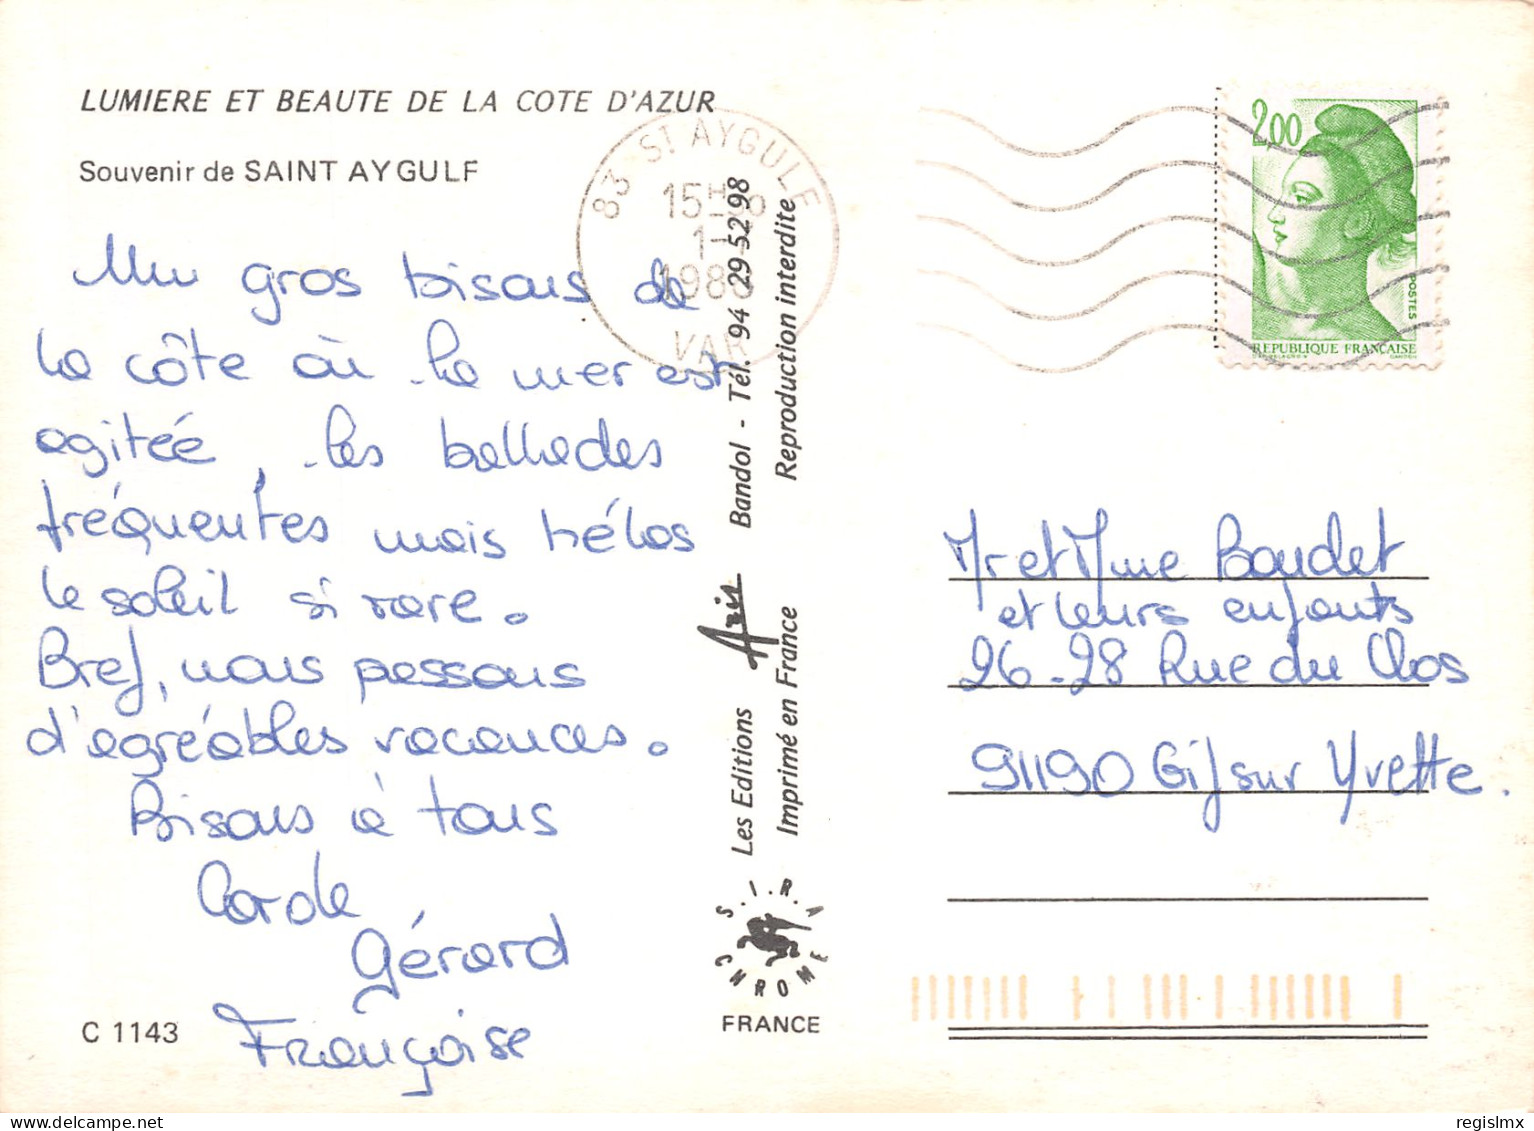 LUMIERE ET BEAUTE DE LA COTE D'AZUR
Souvenir de SAINT AYGULF
Un gros bisous de
la côte où la mer est
agitée, les ballades
fréquentes mais hélas
le soleil si rare.
Bref, nous passons
d'agréables vacances.
Bisous à tous
Carole
Gérard
Françoise
C 1143
83 ST AYGULF
15H
1-
198
VAR
Les Editions Aris Bandol - Tél. 94 29 52 98
Imprimé en France Reproduction interdite
S.I.R.A
CHROME
FRANCE
2,00
POSTES
REPUBLIQUE FRANÇAISE
Mr et Mme Baudet
et leurs enfants
26-28 Rue du Clos
91190 Gif sur Yvette.
regislmx